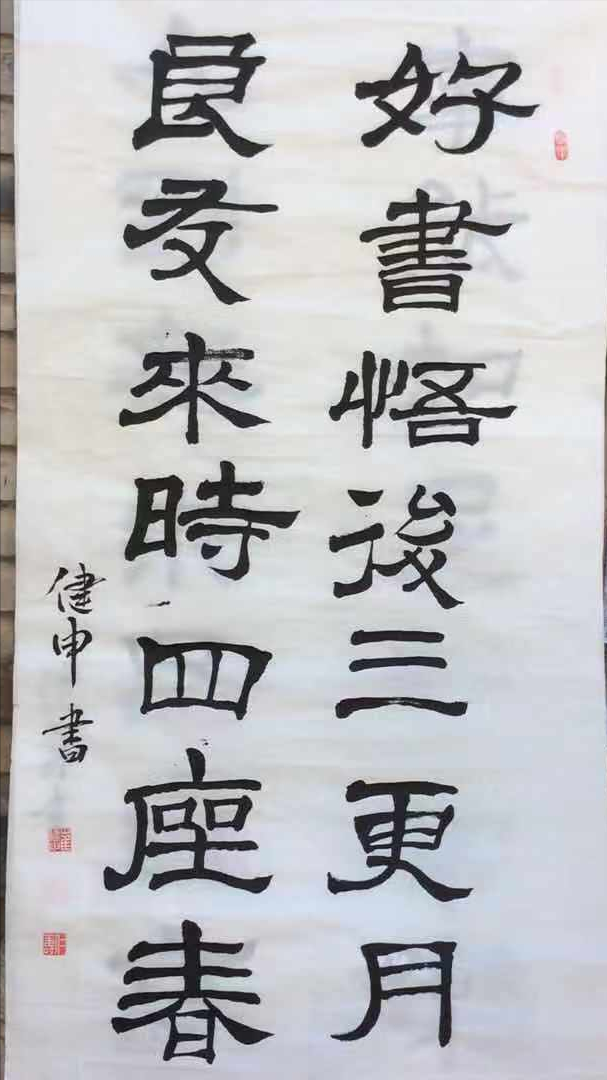 好書悟後三更月
良友來時四座春
健申書